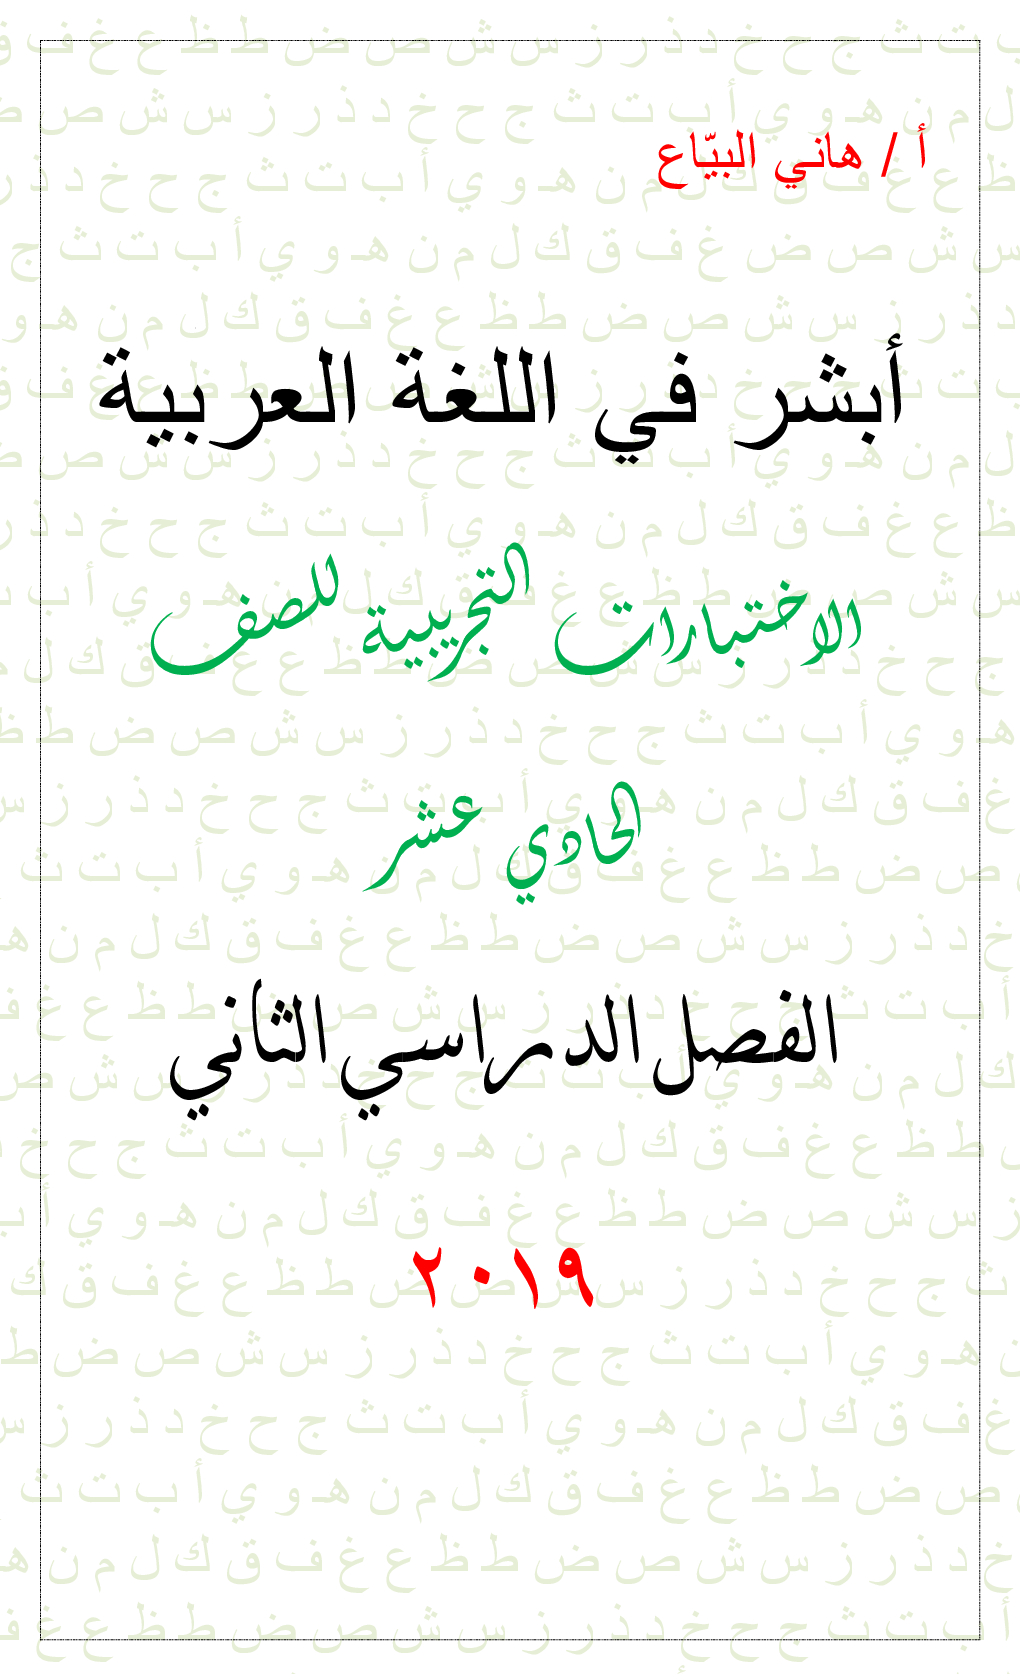 أ / هاني البيّاع
أبشر في اللغة العربية
الاختبارات التجريبية للصف
الحادي عشر
الفصل الدراسي الثاني
٢٠١٩